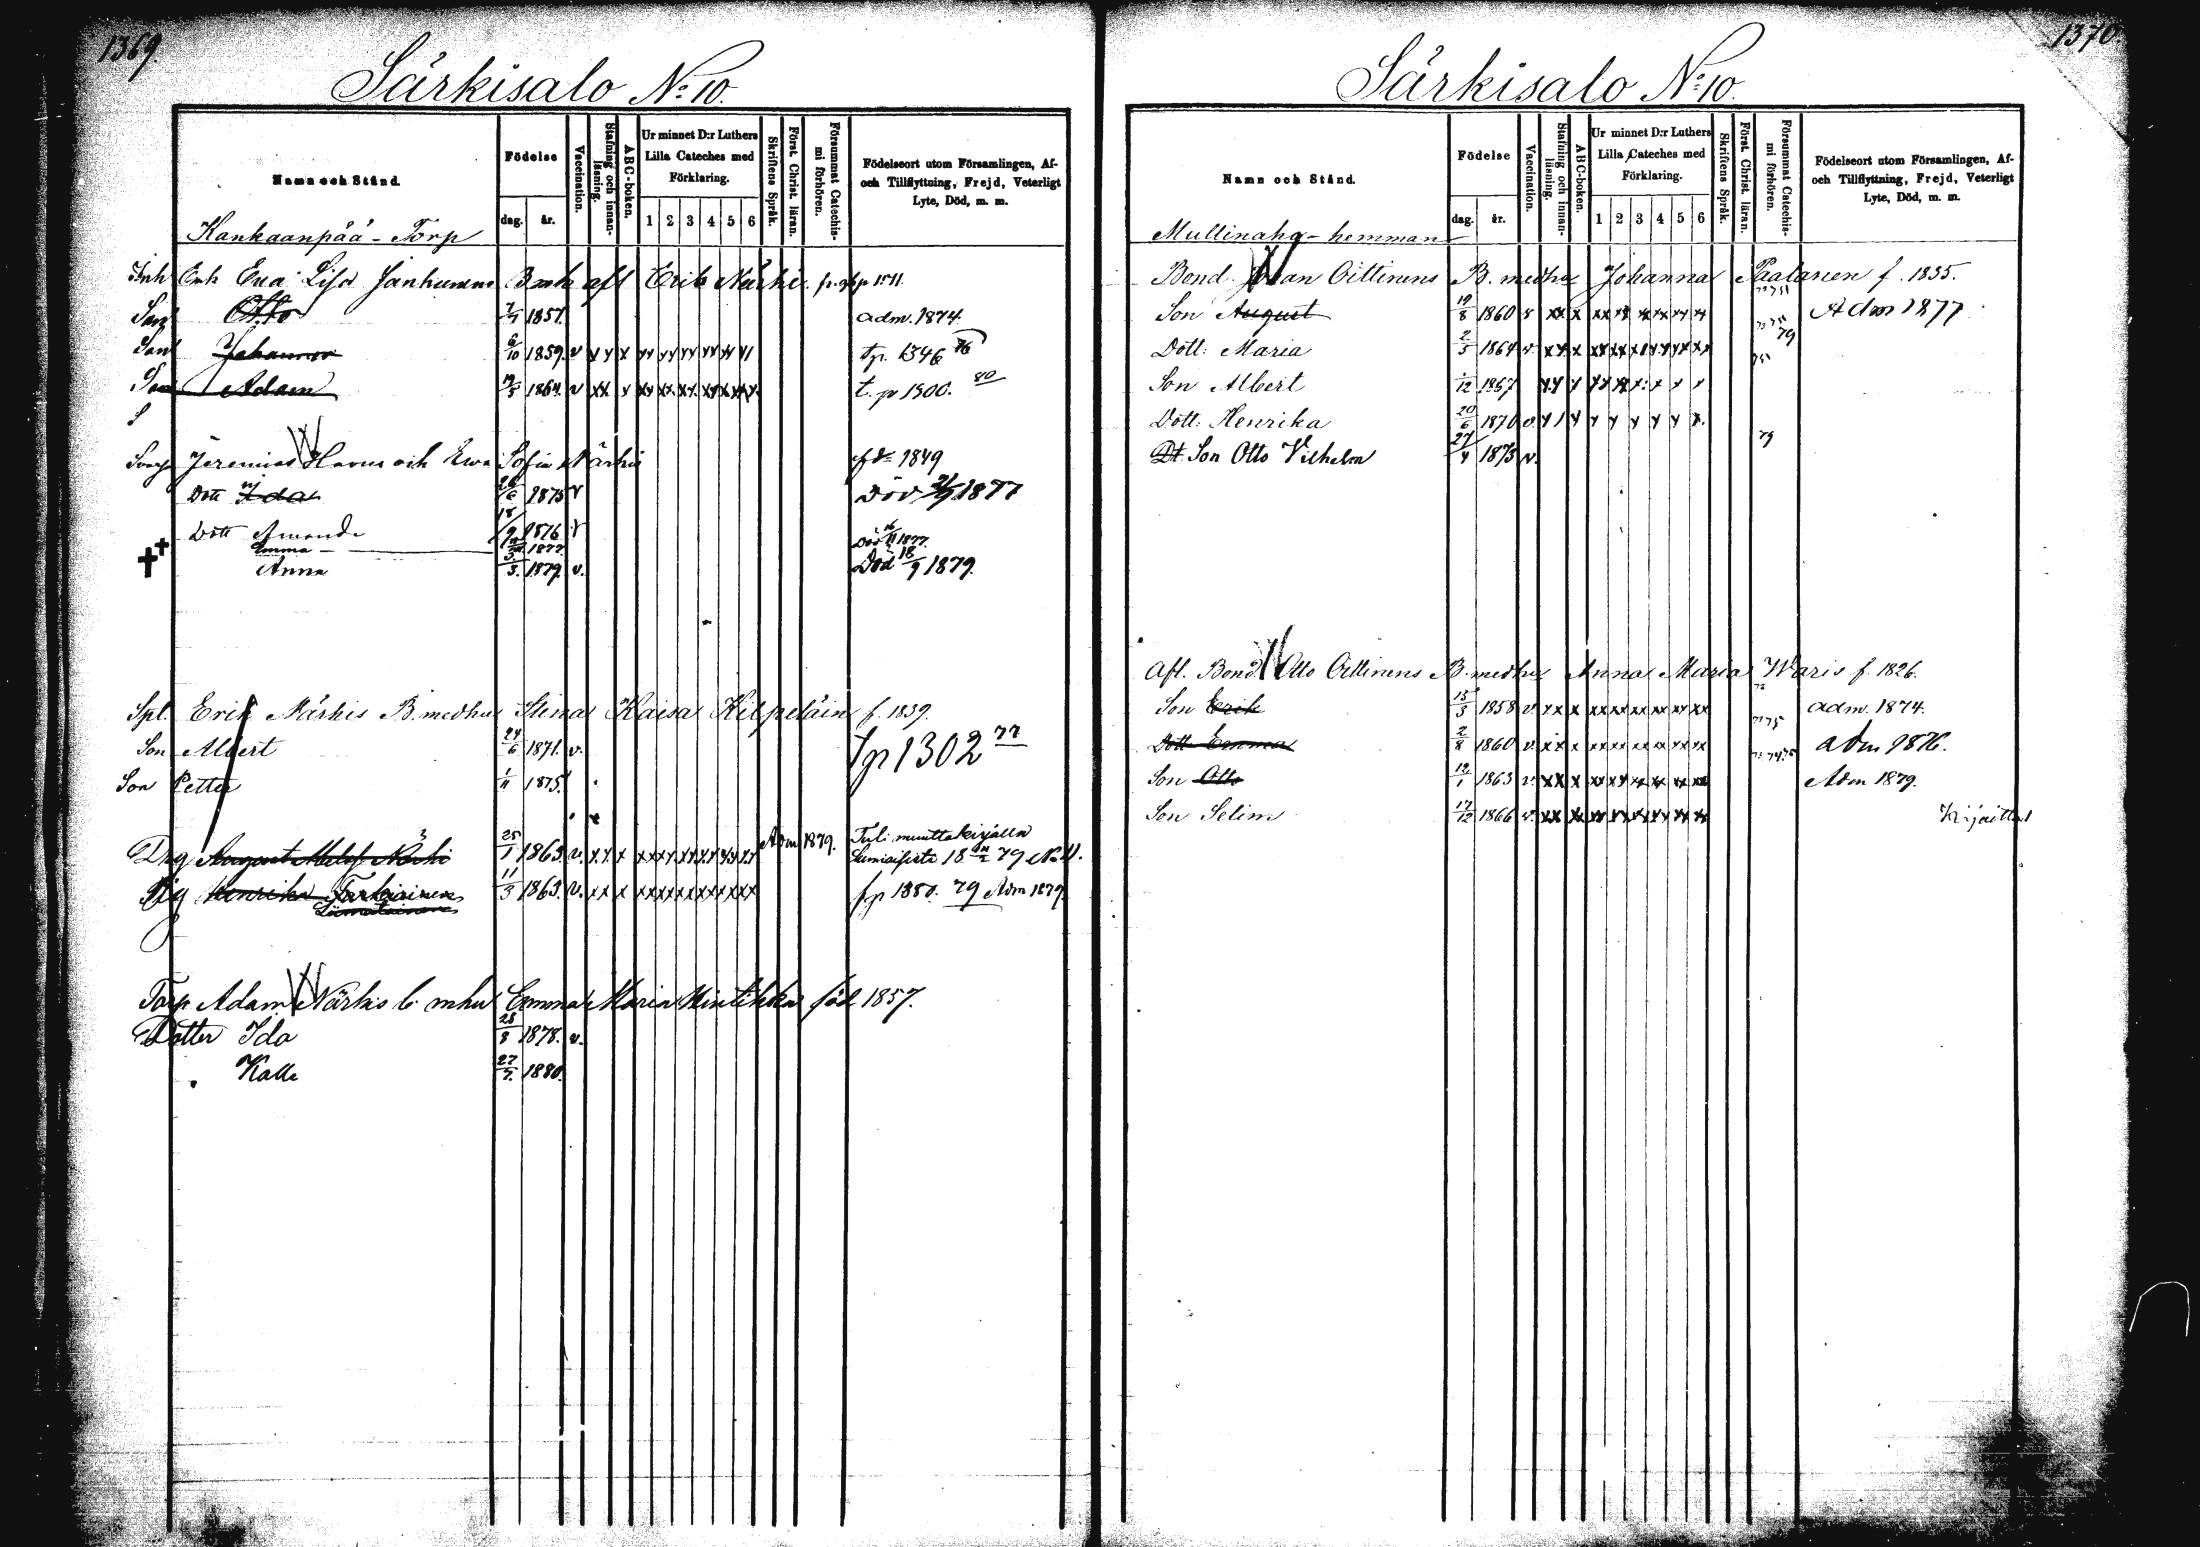 1369.
Särkisalo No 10.
Namn och Stånd.
Födelse
dag.
år.
Vaccination.
Stafning och innanläsning.
ABC-boken.
Ur minnet D:r Luthers
Lilla Cateches med
Förklaring.
1 2 3 4 5 6
Skriftens Språk.
Först. Christ. läran.
Försummat Catechismi förhören.
Födelseort utom Församlingen, Af-
och Tillflyttning, Frejd, Veterligt
Lyte, Död, m. m.
Kankaanpää - Torp
Inh Enk Eva Lisa Janhunen Enk aft Erik Närhi
Son Otto 1857. adm. 1874.
Son Johannes 6/10 1859. v fp. 1346 76
Son Adam 19/5 1864. v t. p 1300. 80
Jeremias och Eva Sofia Närhi 1849
Dott Ida 1875 v Död 1877
Dott Amanda 18/9 1876 v Död 1877.
Emma 1877
Anna 1879. v. Död 18/9 1879.
Spl. Erik Närhis B. medhu Stina Kaisa Kilpeläin f. 1839.
Son Albert 24/6 1871. v. fp 1302 77
Son Petter 1/11 1875.
Drg August Närhi 25/1 1863. v. Adm 1879. Tuli muuttokirjalla
18 79 No 11.
Pig Henrika Tarkiainen 11/3 1863. v. fp 1380. 79 Adm 1879
Torp Adam Närhis b mhu Emma Maria Mintikka född 1857.
Dotter Ida 28/8 1878. v.
Kalle 27/7. 1880.
1370.
Särkisalo No 10.
Namn och Stånd.
Födelse
dag.
år.
Vaccination.
Stafning och innanläsning.
ABC-boken.
Ur minnet D:r Luthers
Lilla Cateches med
Förklaring.
1 2 3 4 5 6
Skriftens Språk.
Först. Christ. läran.
Försummat Catechismi förhören.
Födelseort utom Församlingen, Af-
och Tillflyttning, Frejd, Veterligt
Lyte, Död, m. m.
Mullinaho - hemman
Bond. Johan Oittinens B. medhu Johanna Paalanen f. 1835.
Son August 19/8 1860 v Adm 1877
Dott: Maria 2/5 1864 v. 79
Son Albert 1/12 1867
Dott: Henrika 20/6 1870 v.
Dt. Son Otto Vilhelm 27/4 1873 v. 79
Afl. Bond. Otto Oittinens B. medhu Anna Maria Waris f. 1826.
Son Erik 15/3 1858 v adm. 1874.
Dott Emma 2/8 1860 v. adm 1876.
Son Otto 12/1 1863 v Adm 1879.
Son Selim 17/12 1866 v.